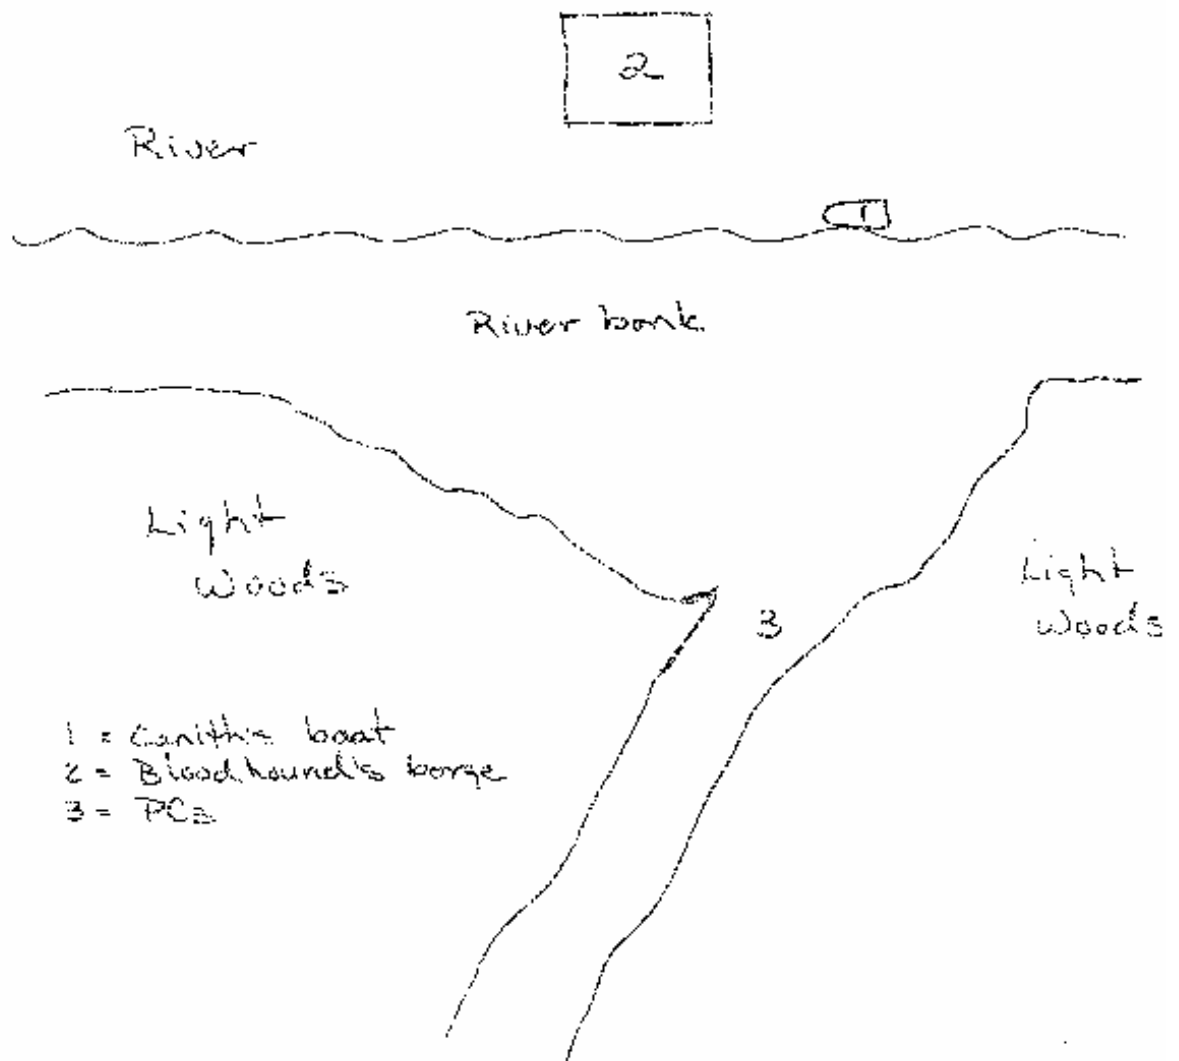 2
River
1
River bank
Light
Woods
Light
Woods
3
1 = Canith's boat
2 = Bloodhound's barge
3 = PCs